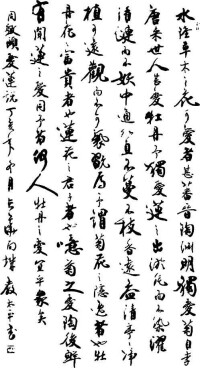 水陸草木之花可愛者甚蕃晉陶淵明獨愛菊自李
唐來世人甚愛牡丹予獨愛蓮之出淤泥而不染濯
清漣而不妖中通外直不蔓不枝香遠益清亭亭淨
植可遠觀而不可褻翫焉予謂菊花之隱逸者也牡
丹花之富貴者也蓮花之君子者也噫菊之愛陶後鮮
有聞蓮之愛同予者何人牡丹之愛宜乎眾矣
周敦頤愛蓮說丁亥年十月